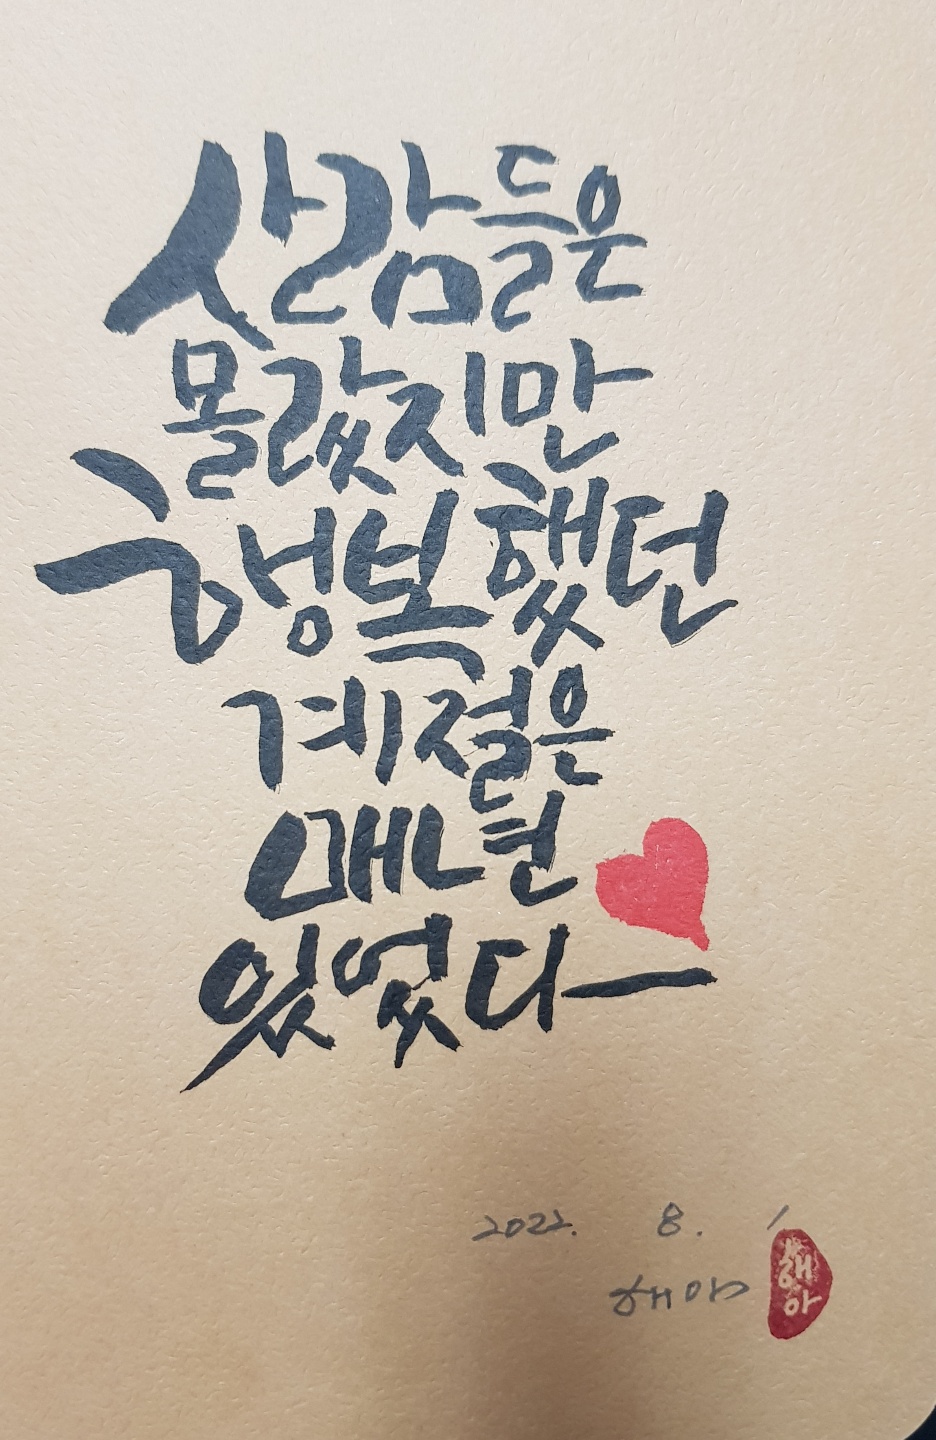 사람들은
몰랐지만
행복했던
계절은
매년
있었다
2022. 8. 1
해아
해아